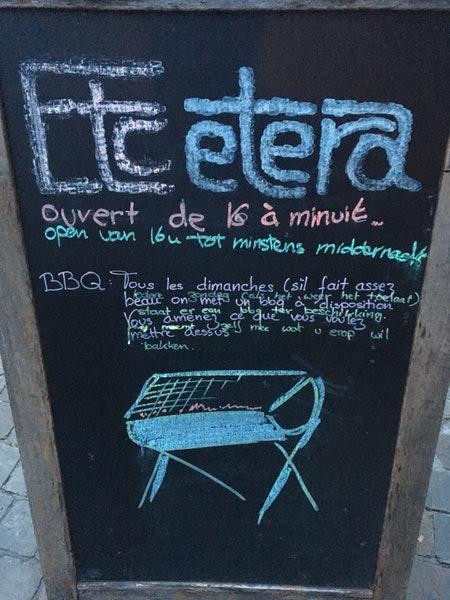 Etc etera
ouvert de 16 à minuit...
open van 16u tot minstens middernacht
BBQ: Tous les dimanches (s'il fait assez
beau on met un bbq à disposition
staat er een bbq ter beschikking.
Vous amenez ce que vous voulez
neemt uzelf mee wat u erop wil
mettre dessus
bakken.